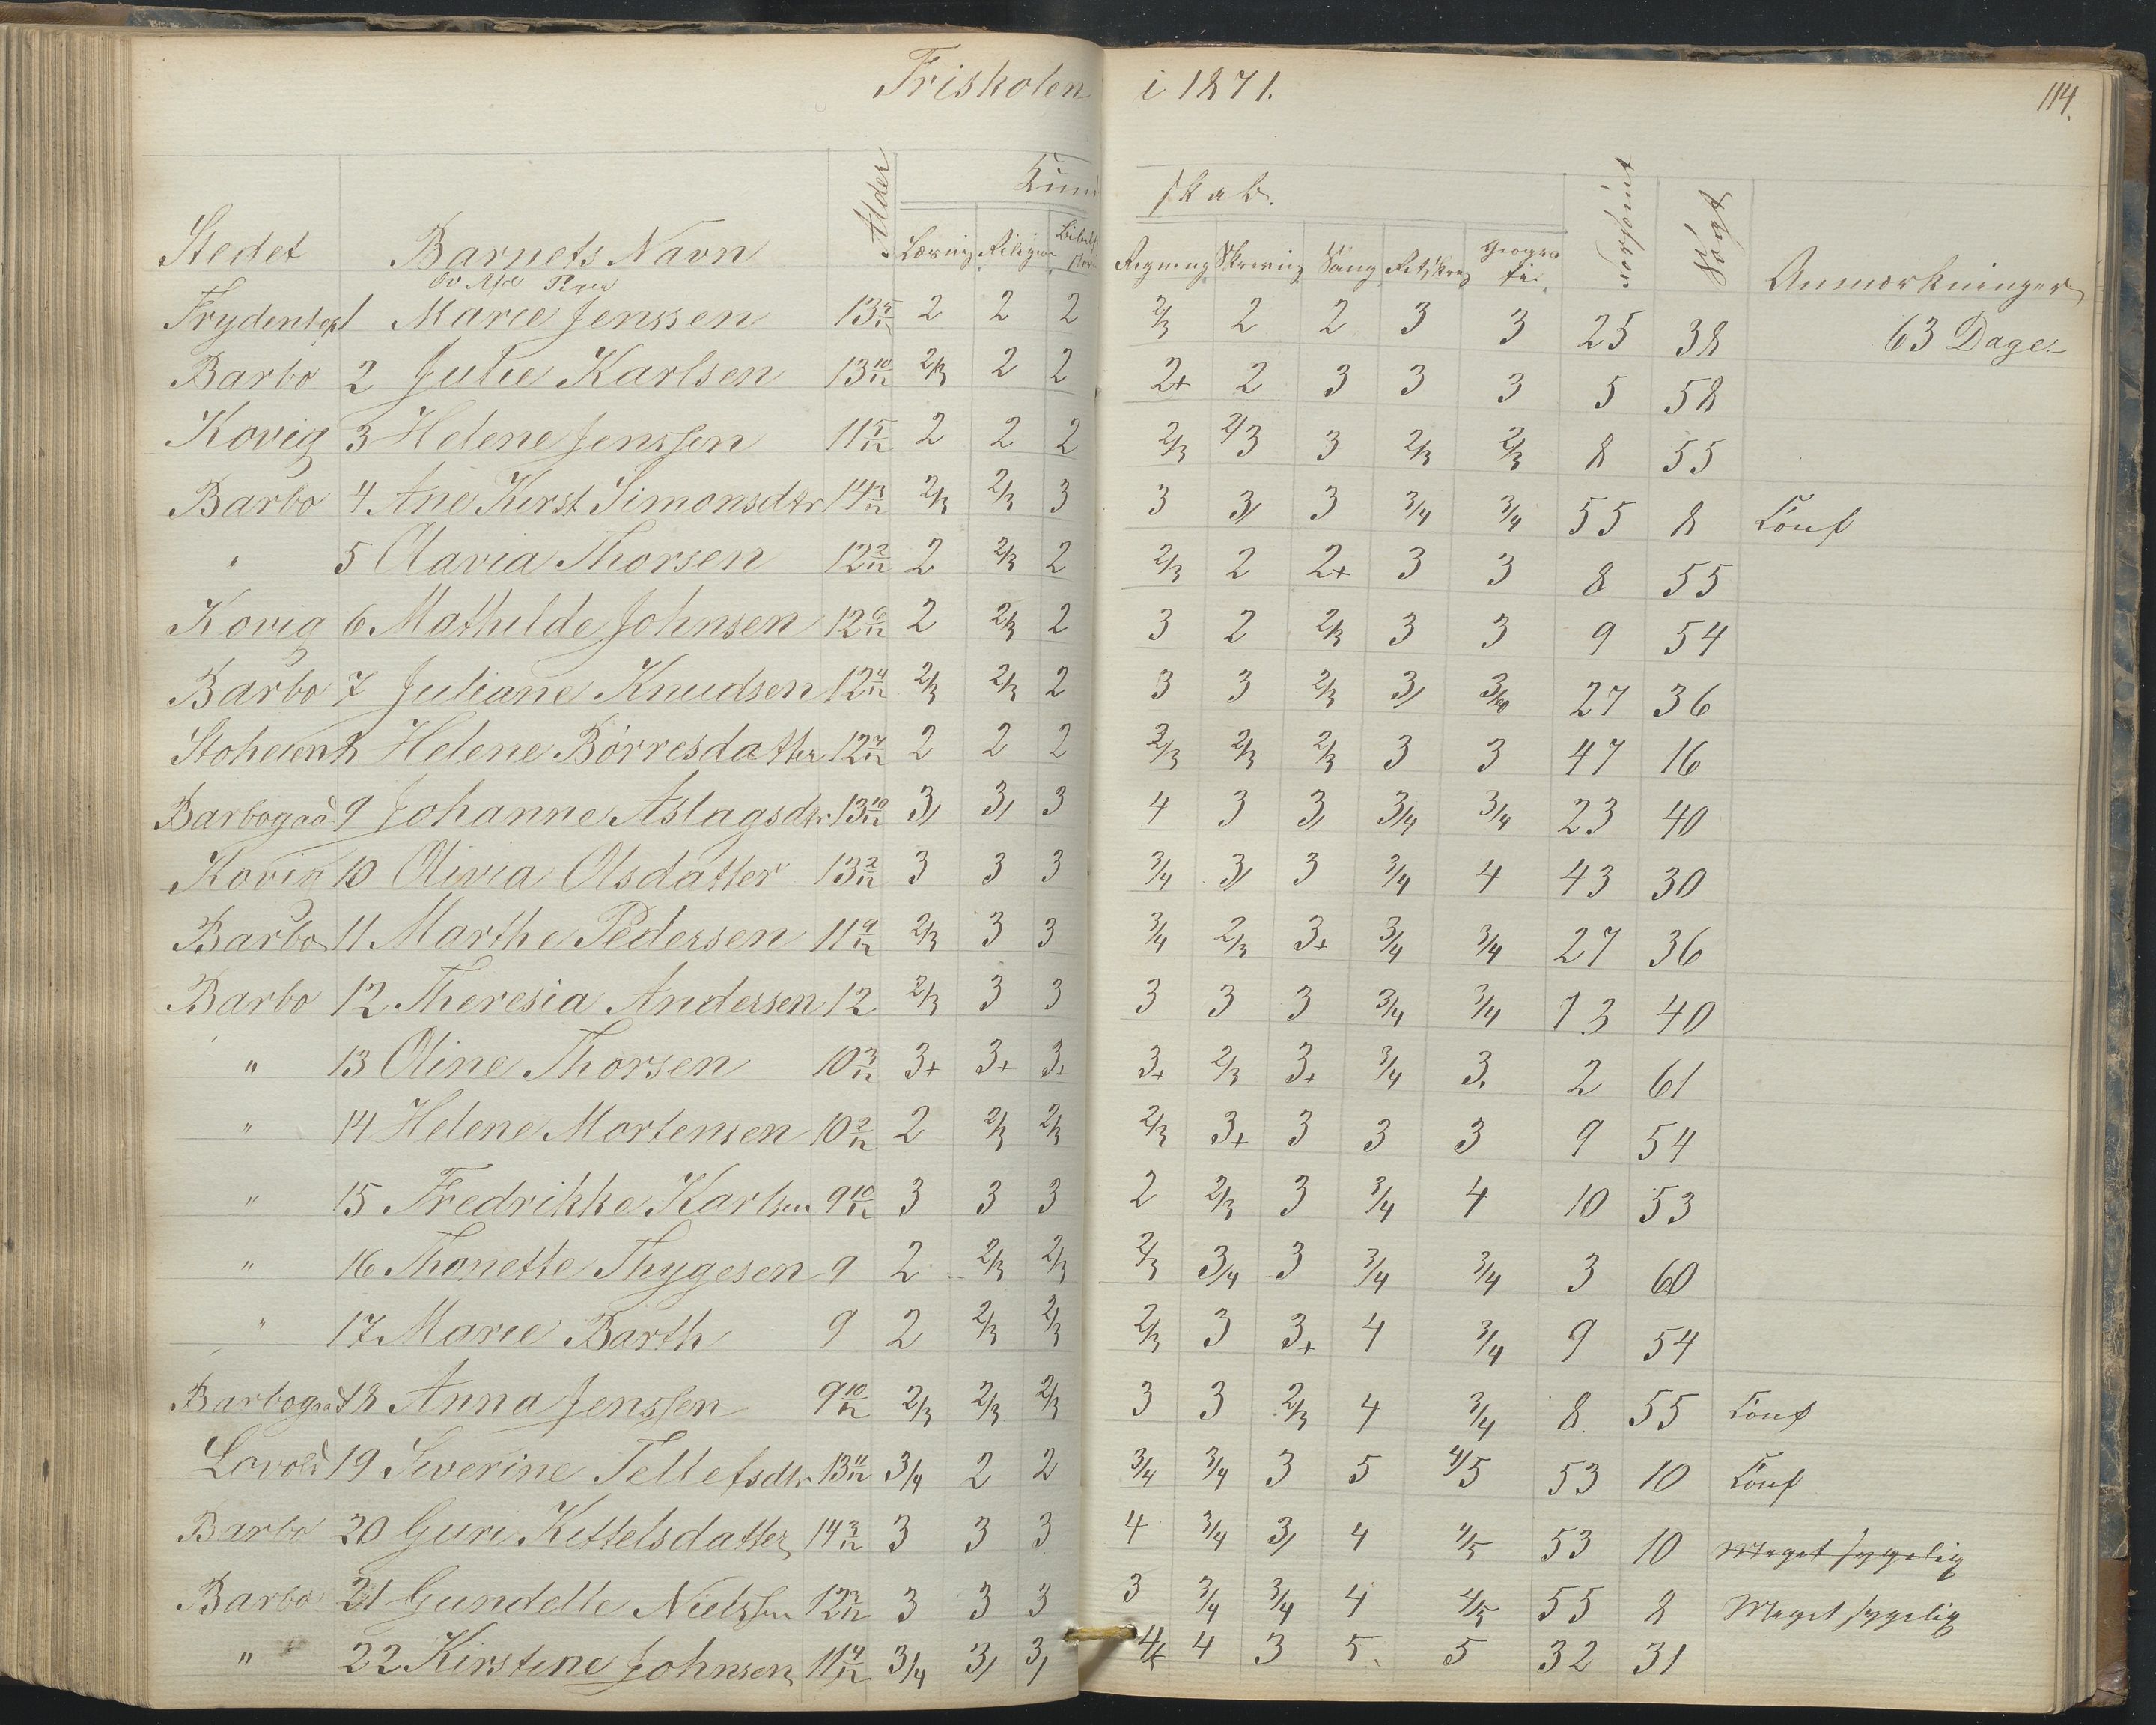 Friskolen i 1871.
114.
Stedet Barnets Navn Alder Kundskab. forsømt søgt Anmærkninger
Læsning Religion Regning Skrivnig Sang Retskrvg Geografi
Øv Afd Piger
1 Marie Jenssen 13 5/12 2 2 2 2/3 2 2 3 3 25 38 63 Dage.
Barbo 2 Julie Karlsen 13 10/12 2/3 2 2 2+ 2 3 3 3 5 58
Kovig 3 Helene Jenssen 11 5/12 2 2 2 2/3 2/3 3 2/3 2/3 8 55
Barbo 4 Ane Kirst Simonsdtr 14 3/12 2/3 2/3 3 3 3/ 3 3/4 3/4 55 8 Conf
" 5 Olavia Thorsen 12 2/12 2 2/3 2 2/3 2 2+ 3 3 8 55
Kovig 6 Mathilde Johnsen 12 6/12 2 2/3 2 3 2 2/3 3 3 9 54
Barbo 7 Juliane Knudsen 12 4/12 2/3 2/3 2 3 3 2/3 3/ 27 36
8 Helene Börresdatter 12 7/12 2 2 2 2/3 2/3 2/3 3 3 47 16
Barbogaad 9 Johanne Aslagsdtr 13 10/12 3/ 3/ 3 4 3 3/ 3/4 3/4 23 40
Kovig 10 Olivia Olsdatter 13 2/12 3 3 3 3/4 3/ 3 3/4 4 43 30
Barbo 11 Marthe Pedersen 11 9/12 2/3 3 3 3/4 2/3 3+ 3/4 3/4 27 36
Barbo 12 Theresia Andersen 12 2/3 3 3 3 3 3 3/4 3/4 13 40
" 13 Oline Thorsen 10 3/12 3+ 3+ 3+ 3+ 2/3 3+ 3/4 3. 2 61
" 14 Helene Mortensen 10 2/12 2 2/3 2/3 2/3 3+ 3 3 3 9 54
" 15 Fredrikke Karlsen 9 10/12 3 3 3 2 2/3 3 3/4 4 10 53
" 16 Thonette Thygesen 9 2 2/3 2/3 2/3 3/4 3 3/4 3/4 3 60
" 17 Marie Barth 9 2 2/3 2/3 2/3 3 3+ 4 3/4 9 54
Barbogaad 18 Anna Jenssen 9 10/12 2/3 2/3 2/3 3 3 2/3 4 3/4 8 55 Conf
Lovold 19 Severine Tellefsdtr 13 11/12 3/4 2 2 3/4 3/4 3 5 4/5 53 10 Conf
Barbo 20 Guri Kittelsdatter 14 3/12 3 3 3 4 3/4 3/ 4 4/5 53 10 Meget sygelig
Barbo 21 Gundelle Nielssen 12 3/12 3 3 3 3 3/4 3/4 4 4/5 55 8 Meget sygelig
" 22 Kirstine Johnsen 11 4/12 3/4 3/ 3/ 4 3 5 5 32 31